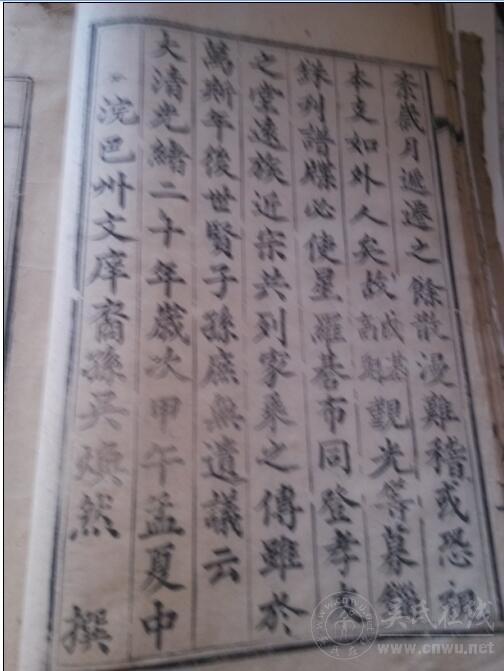 紊歲月遞遷之餘散漫難稽或恐視
本支如外人矣故成基高魁觀光等募鐫
銖利譜牒必使星羅碁布同登孝
之堂遠族近宗共列家乘之傳雖於
萬斯年後世賢子孫庶無遺議云
大清光緒二十年歲次甲午孟夏中
浣邑州文庠裔孫吳煥然 撰
吴氏在线
www.cnwu.net